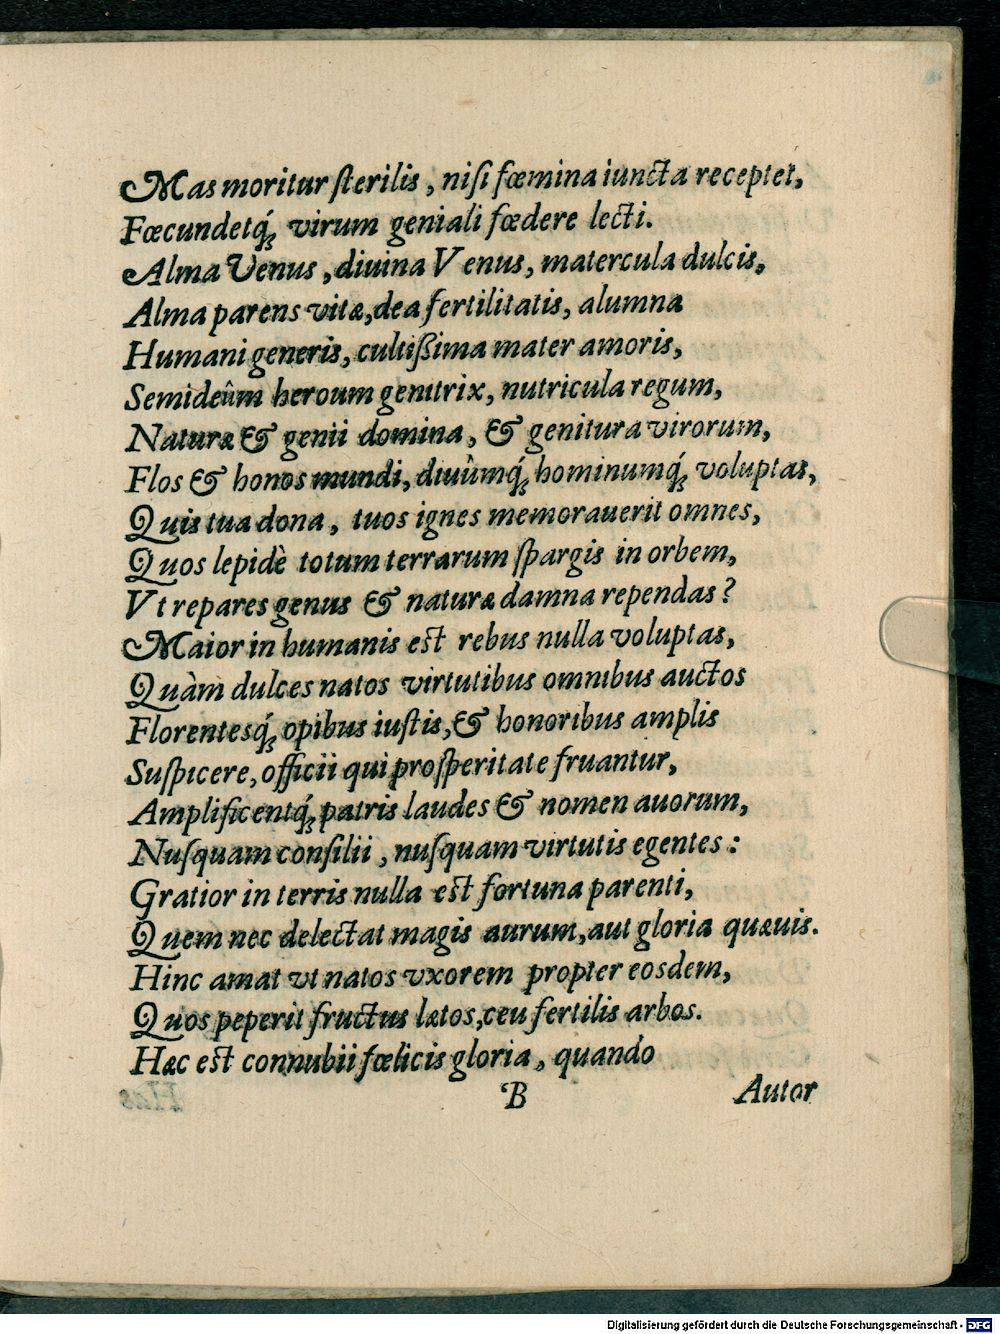 Mas moritur ſterilis, niſi fœmina iuncta receptet,
Fœcundetq́; virum geniali fœdere lecti.
Alma Venus, diuina Venus, matercula dulcis,
Alma parens vitæ, dea fertilitatis, alumna
Humani generis, cultißima mater amoris,
Semideûm heroum genitrix, nutricula regum,
Naturæ & genii domina, & genitura virorum,
Flos & honos mundi, diuûmq́; hominumq́; voluptas,
Quis tua dona, tuos ignes memorauerit omnes,
Quos lepidè totum terrarum ſpargis in orbem,
Vt repares genus & naturæ damna rependas?
Maior in humanis est rebus nulla voluptas,
Quàm dulces natos virtutibus omnibus auctos
Florentesq́; opibus iuſtis, & honoribus amplis
Suſpicere, officii qui proſperitate fruantur,
Amplificentq́; patris laudes & nomen auorum,
Nuſquam conſilii, nuſquam virtutis egentes:
Gratior in terris nulla est fortuna parenti,
Quem nec delectat magis aurum, aut gloria quæuis.
Hinc amat vt natos vxorem propter eosdem,
Quos peperit fructus lætos, ceu fertilis arbos.
Hæc est connubii fœlicis gloria, quando
B Autor
Digitalisierung gefördert durch die Deutsche Forschungsgemeinschaft - DFG